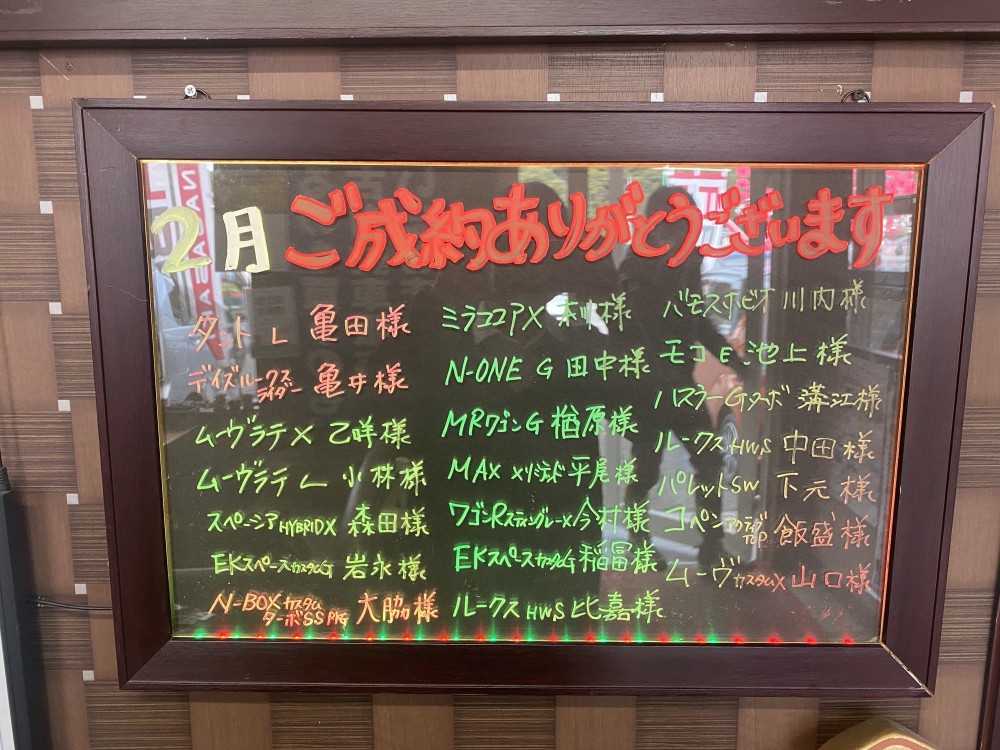 2月 ご成約ありがとうございます
タント L 亀田様
デイズルークスライダー 亀井様
ムーヴラテ X 乙咩様
ムーヴラテ L 小林様
スペーシア HYBRID X 森田様
EKスペースカスタムG 岩永様
N-BOX カスタム ターボSS PKG 大脇様
ミラココア X 本川様
N-ONE G 田中様
MRワゴン G 楢原様
MAX Xリミテッド 平尾様
ワゴンRスティングレーX 今村様
EKスペースカスタムG 稲冨様
ルークス HWS 比嘉様
バモスホビオ 川内様
モコ E 池上様
ハスラーGターボ 溝江様
ルークス HWS 中田様
パレットSW 下元様
コペンアクティブTOP 飯盛様
ムーヴカスタムX 山口様